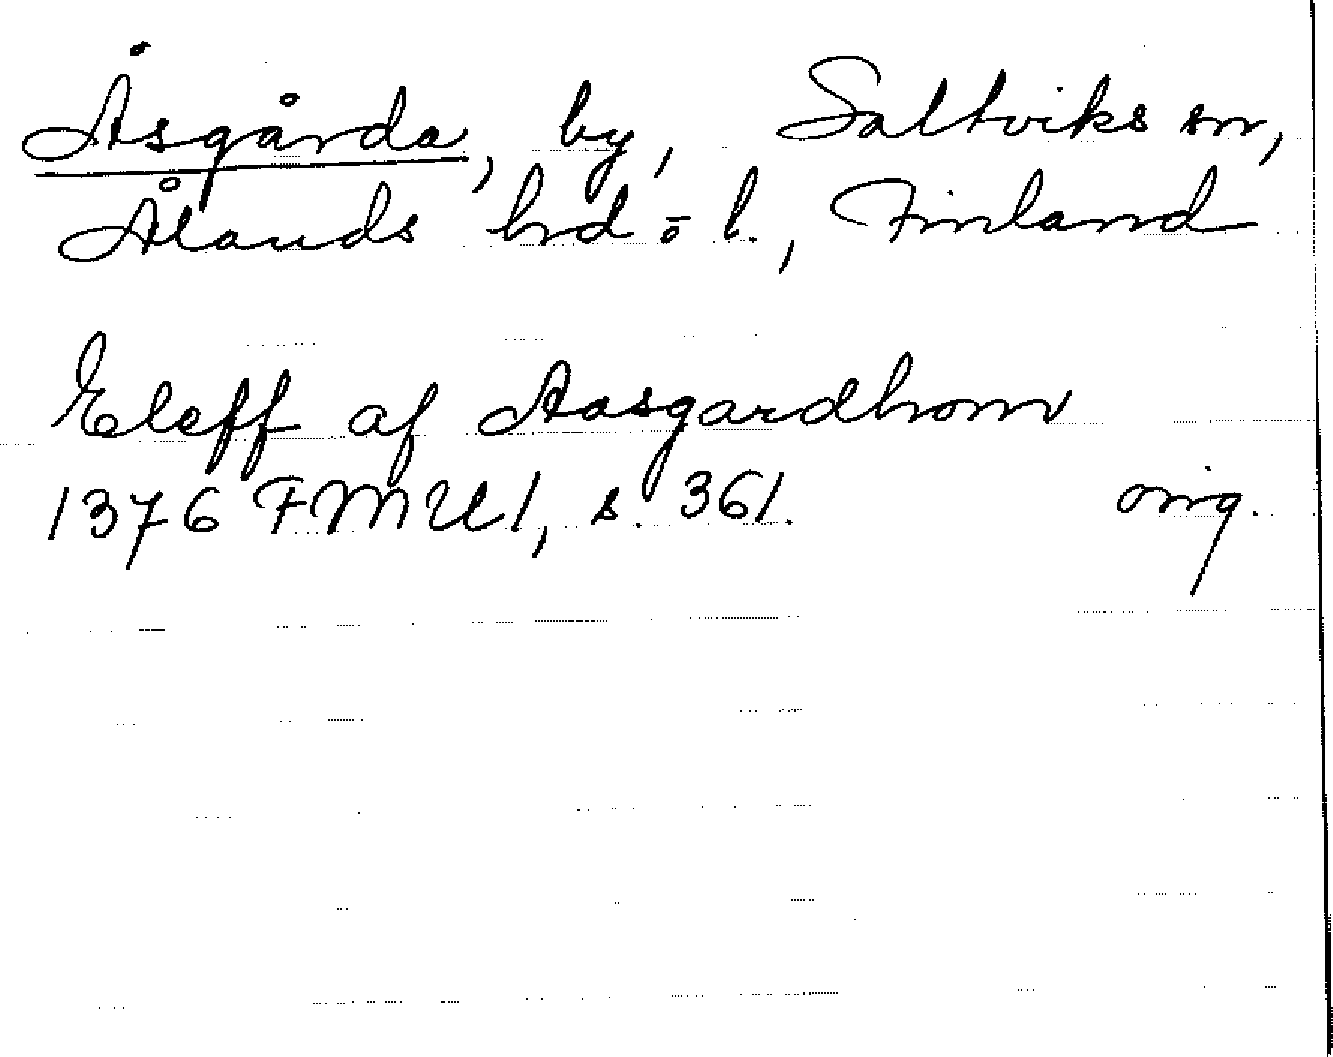 Åsgårda, by, Saltviks sn,
Ålands hrd o. l., Finland
Eleff af Aasgardhom
1376 FMU 1, s. 361. orig.